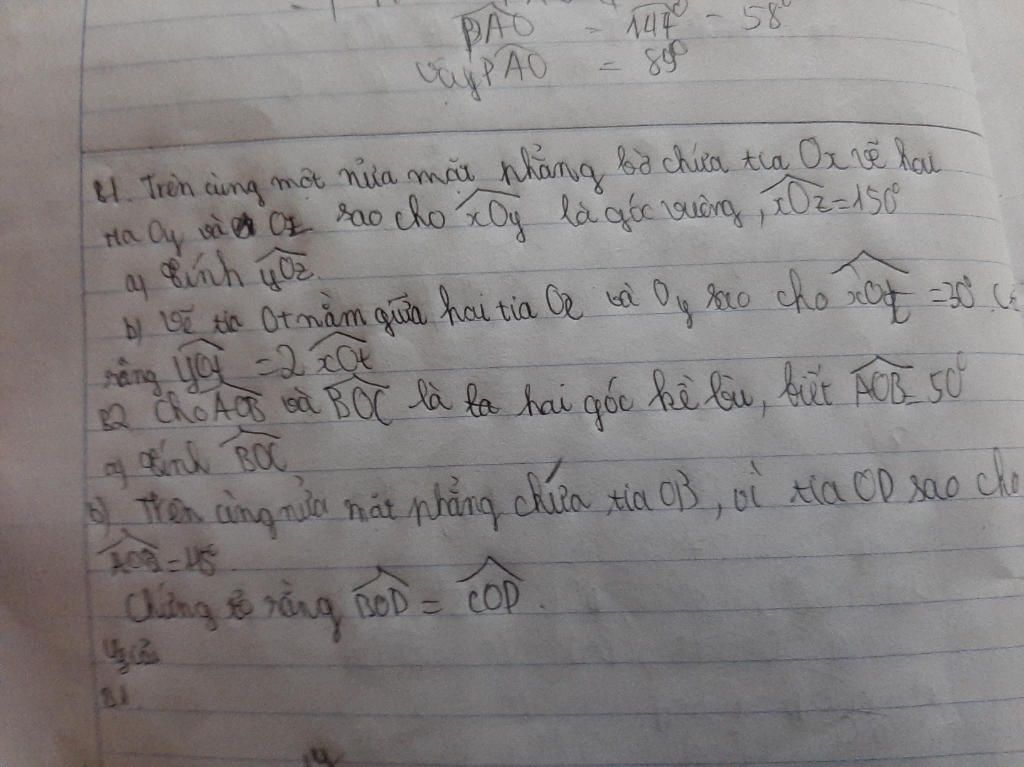 PAO = 147° - 58°
Vậy PAO = 89°
B1. Trên cùng một nửa mặt phẳng bờ chứa tia Ox vẽ hai
tia Oy và Oz sao cho xOy là góc vuông, xOz = 150°
a) tính yOz.
b) Vẽ tia Ot nằm giữa hai tia Oz và Oy sao cho xOt = 30°
rằng yOt = 2 xOt
B2 Cho AOB và BOC là hai góc kề bù, biết AOB = 50°
a) tính BOC
b) Trên cùng nửa mặt phẳng chứa tia OB, vẽ tia OD sao cho
= 45°
Chứng tỏ rằng BOD = COD.
Giải
B1